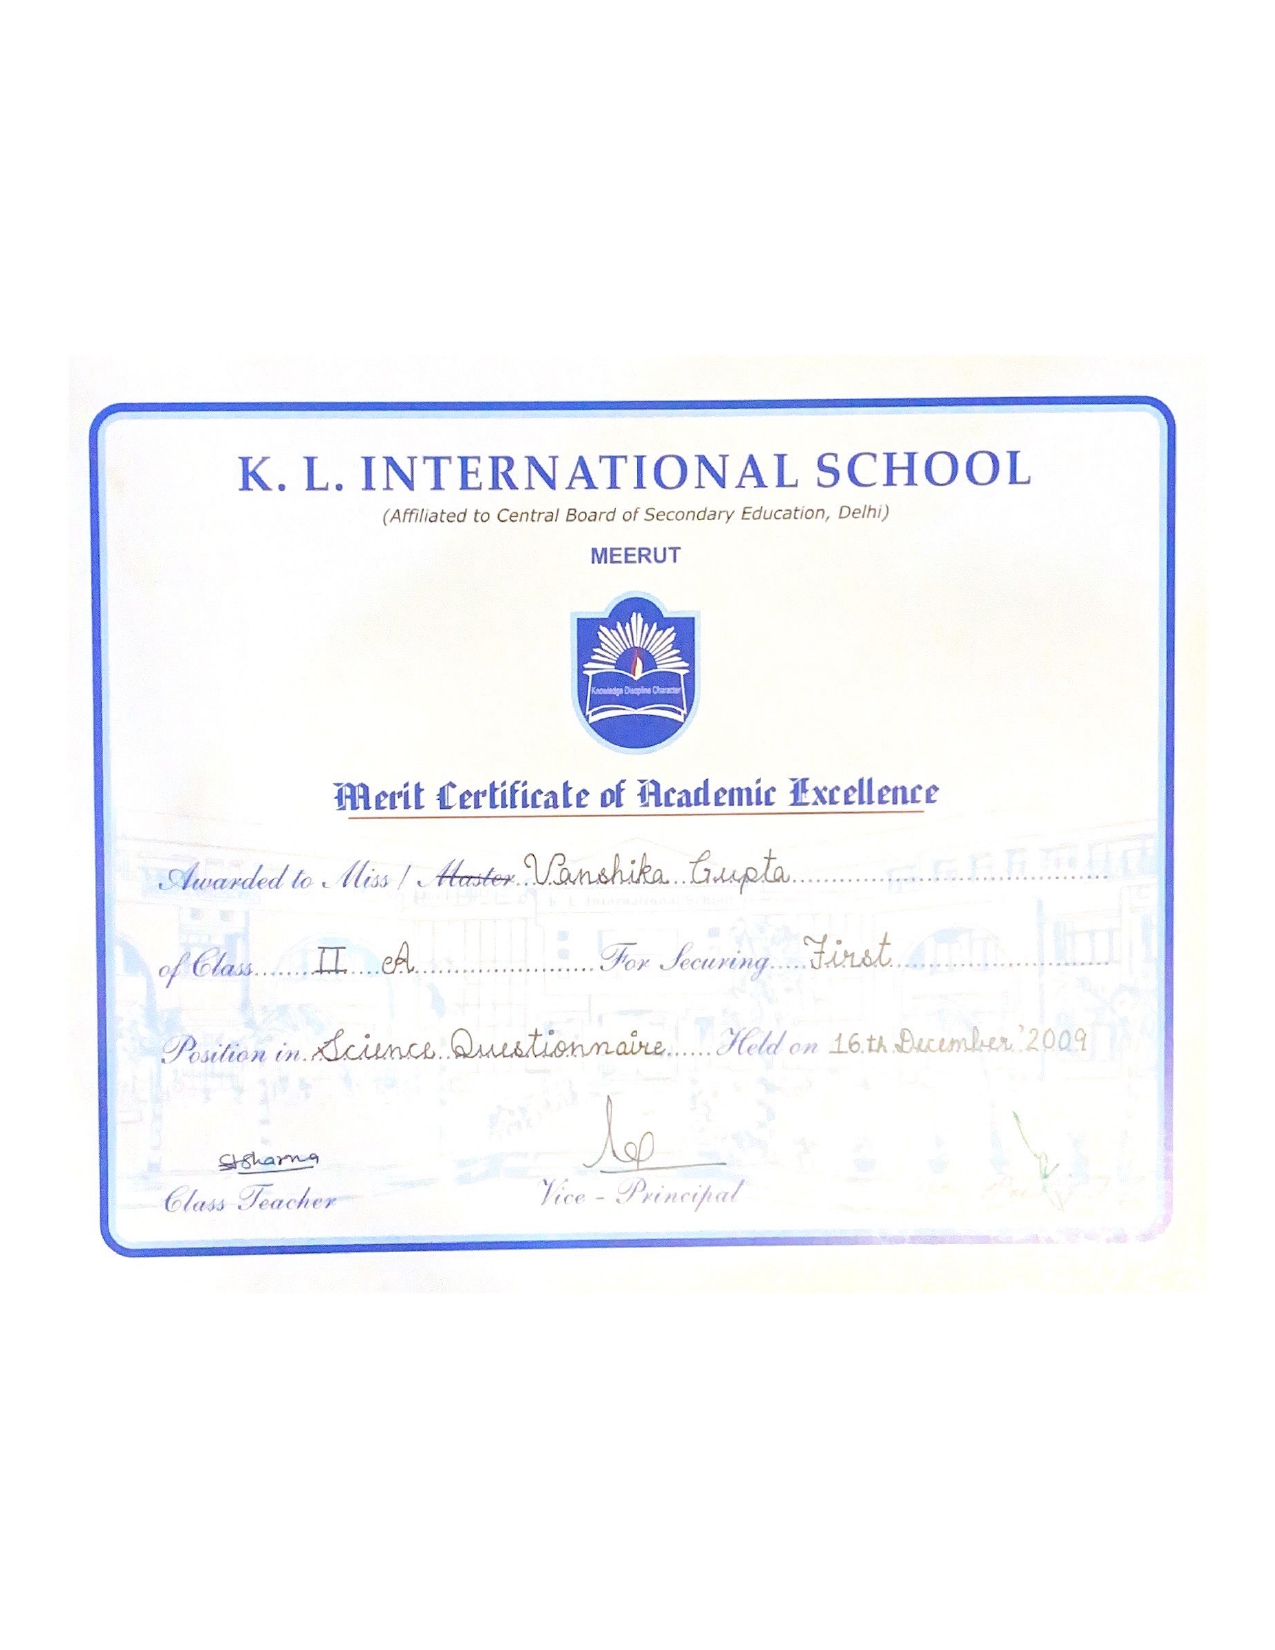 K. L. INTERNATIONAL SCHOOL
(Affiliated to Central Board of Secondary Education, Delhi)
MEERUT
Knowledge Discipline Character
Merit Certificate of Academic Excellence
Awarded to Miss / Master Vanshika Gupta
K. L. International School
of Class II A For Securing First
Position in Science Questionnaire Held on 16th December'2009
Sharma
Class Teacher Vice - Principal